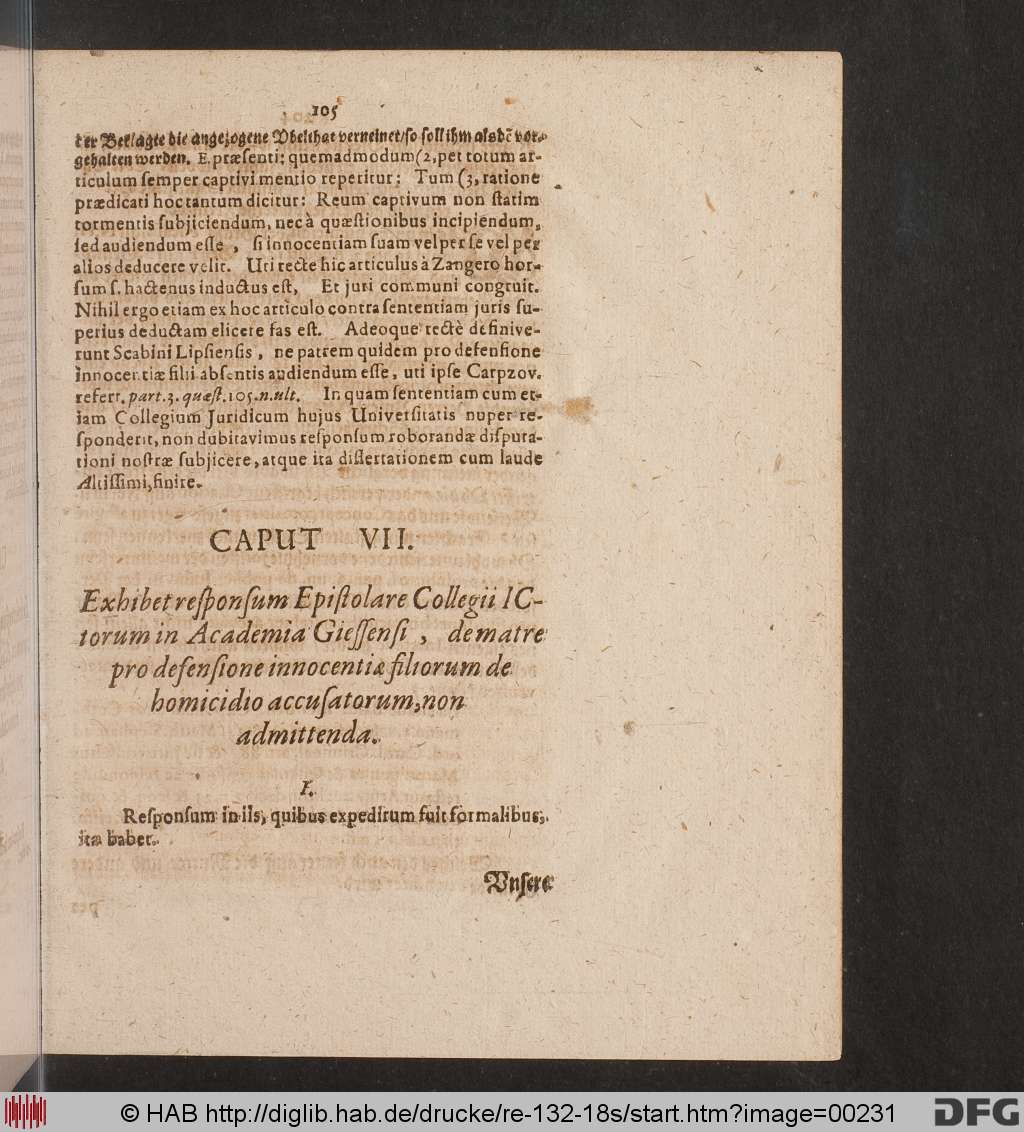 105
der Beklagte die angezogene Vbelthat verneinet/so soll ihm alsdē vor-
gehalten werden. E. præsenti: quemadmodum (2, per totum ar-
ticulum semper captivi mentio reperitur: Tum (3, ratione
prædicati hoc tantum dicitur: Reum captivum non statim
tormentis subjiciendum, nec à quæstionibus incipiendum,
sed audiendum esse, si innocentiam suam vel per se vel per
alios deducere velit. Uti recte hic articulus à Zangero hor-
sum s. hactenus inductus est, Et juri communi congruit.
Nihil ergo etiam ex hoc articulo contra sententiam juris su-
perius deductam elicere fas est. Adeoque rectè definive-
runt Scabini Lipsiensis, ne patrem quidem pro defensione
innocentiæ filii absentis audiendum esse, uti ipse Carpzov.
refert. part. 3. quæst. 105. n. ult. In quam sententiam cum et-
iam Collegium Juridicum hujus Universitatis nuper re-
sponderit, non dubitavimus responsum roborandæ disputa-
tioni nostræ subjicere, atque ita dissertationem cum laude
Altissimi, finire.
CAPUT VII.
Exhibet responsum Epistolare Collegii IC-
torum in Academia Giessensi, de matre
pro defensione innocentiæ filiorum de
homicidio accusatorum, non
admittenda.
I.
Responsum in iis, quibus expeditum fuit formalibus,
ita habet.
Vnsere
© HAB http://diglib.hab.de/drucke/re-132-18s/start.htm?image=00231
DFG